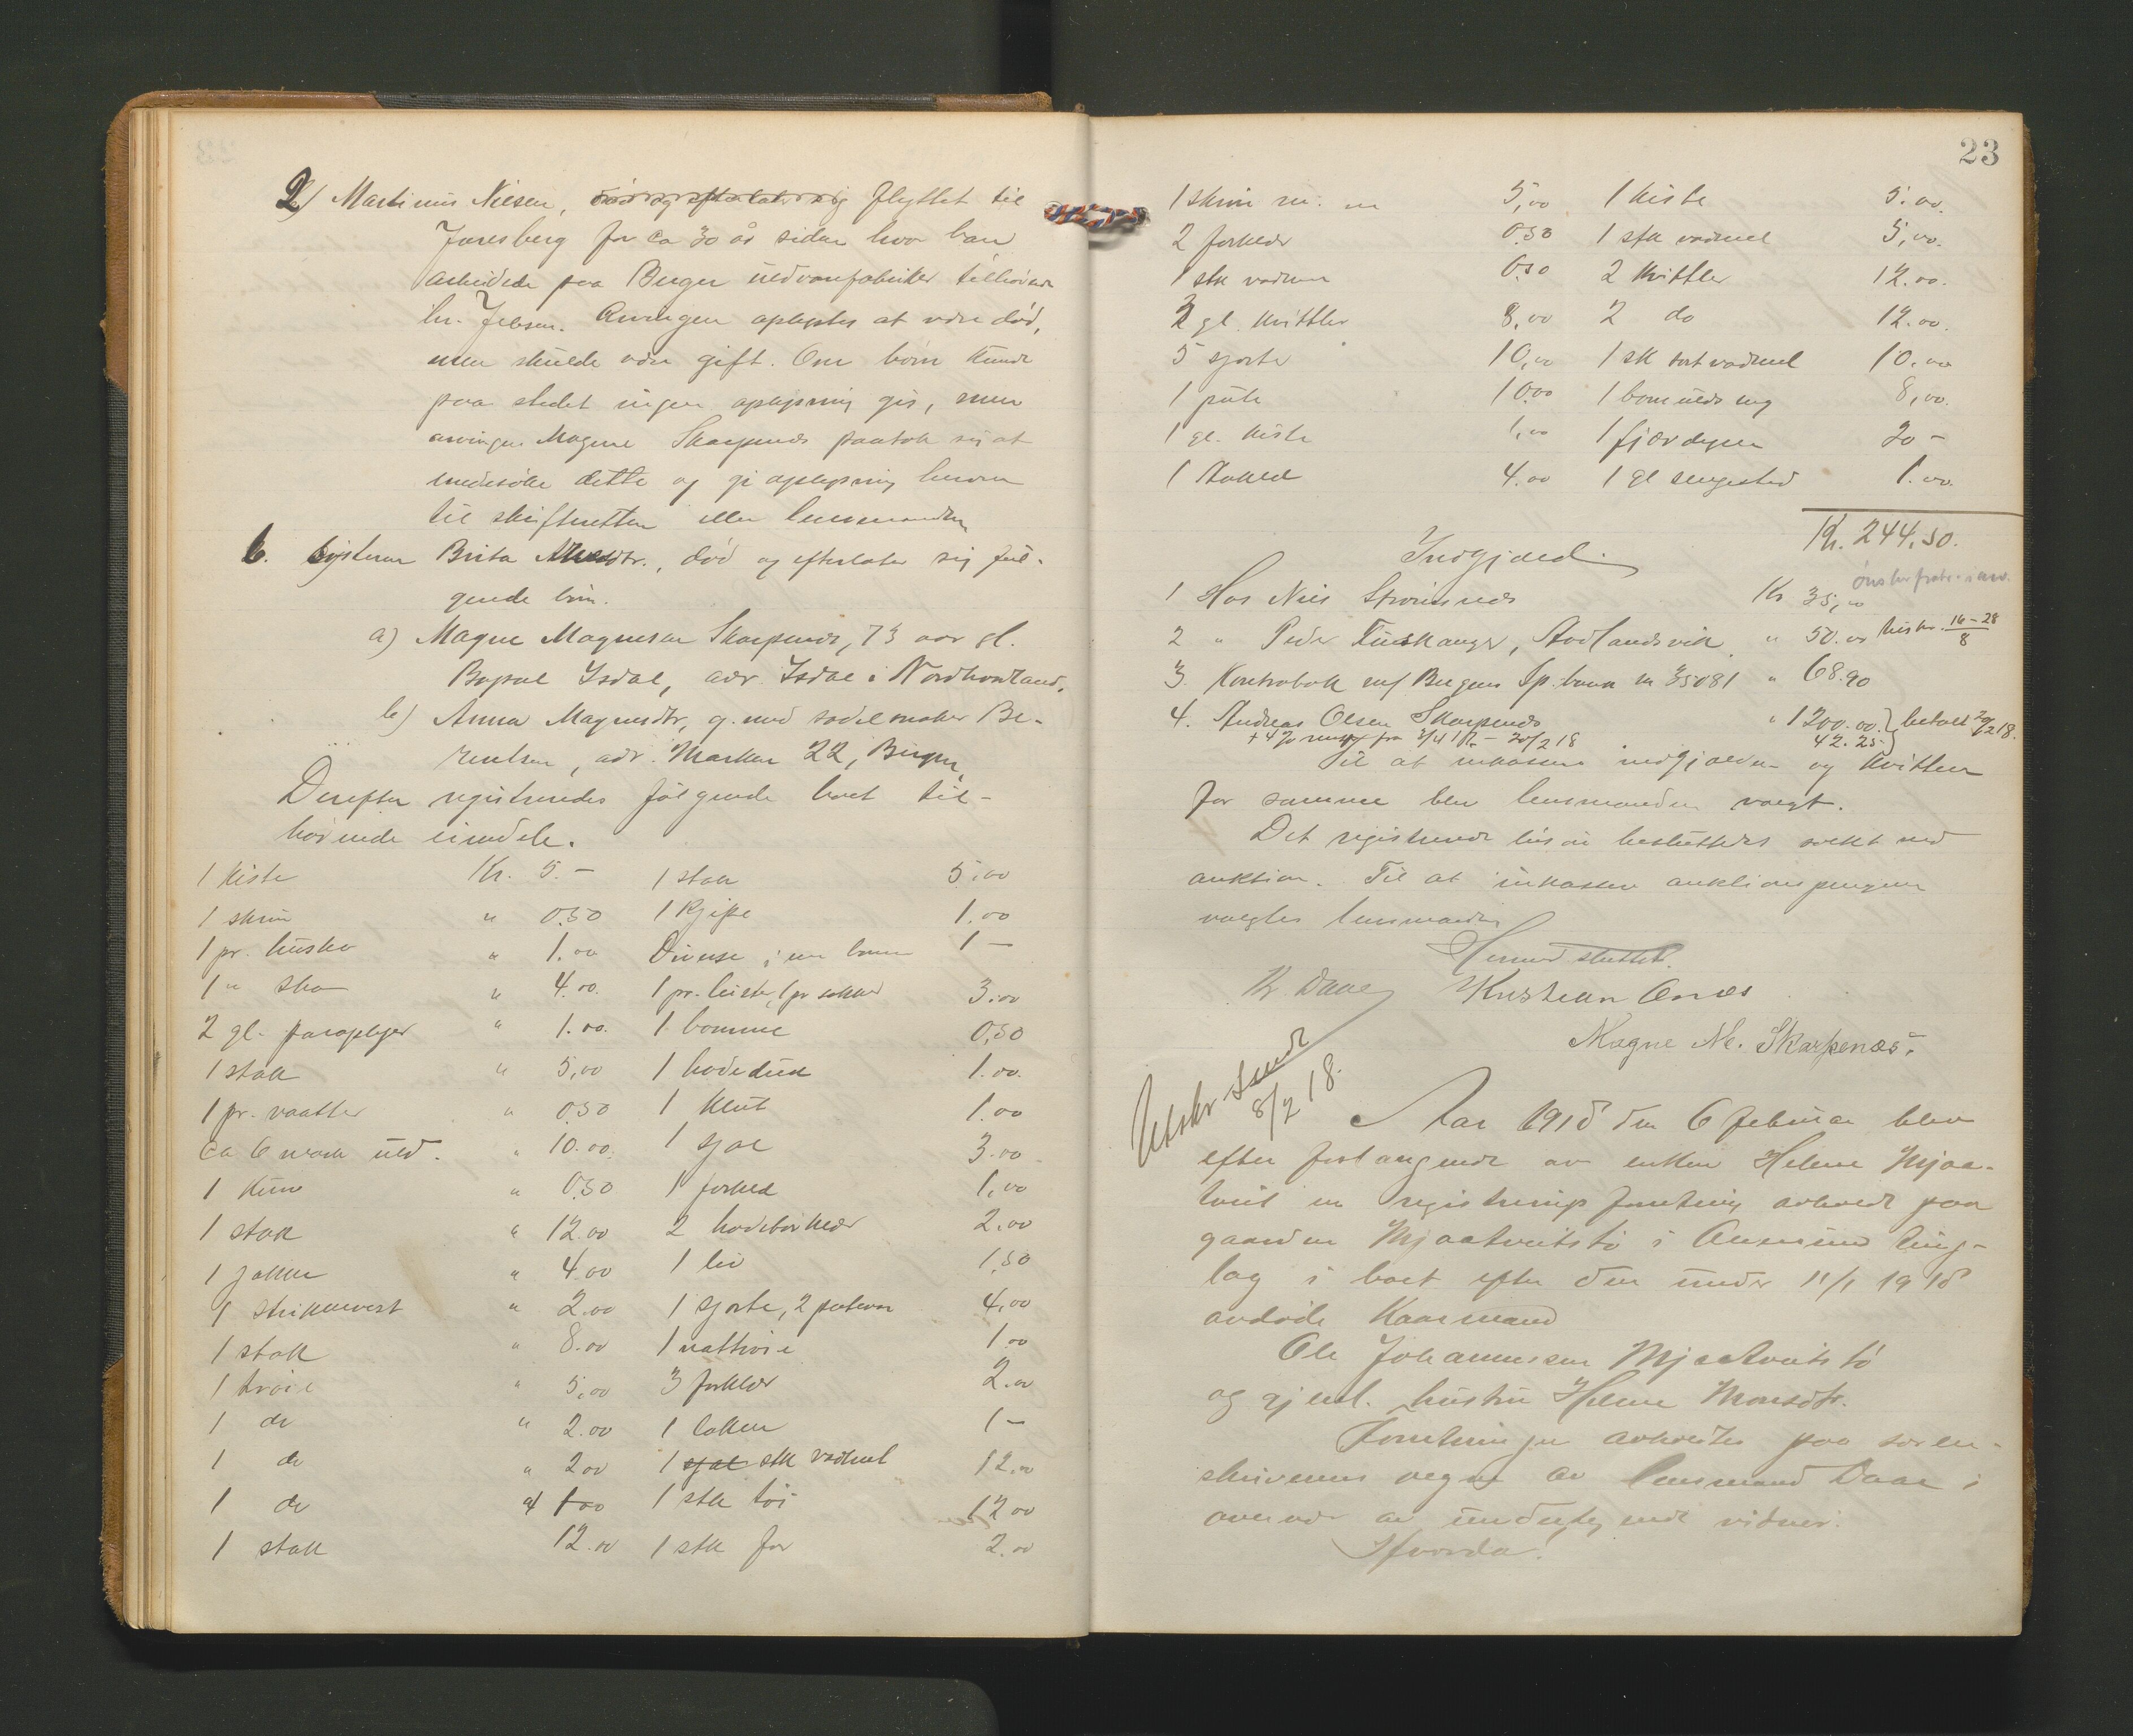 2) Martinus Nilsen, død og efterlater sig flyttet til
Jarlsberg for ca 30 år siden hvor han
arbeidede paa Berger uldvarefabriker tilhørende
hr. Jebsen. Arvingen oplystes at være død,
men skulde være gift. Om børn kunde
paa stedet ingen oplysning gis, men
arvingen Magne Skarpenes paatok sig at
undersøke dette og gi oplysning herom
til skifteretten eller lensmanden
6. Søsteren Brita Nilsdtr., død og efterlater sig føl-
gende børn.
a) Magne Magnesen Skarpenes, 73 aar gl.
Bopæl Isdal, adr. Isdal i Nordhordland.
b) Anna Magnesdtr, g. med sadelmaker Be-
rentsen, adr. Marken 22, Bergen.
Derefter registreredes følgende boet til-
hørende eiendele.
1 kiste Kr. 5.- 1 stak 5,00
1 skrin " 0.50 1 Kjipe 1.00
1 pr. hussko " 1.00 Diverse i en 1 -
1 " sko " 4.00. 1 pr. , 1 pr sokker 3.00
2 gl. paraplyer " 1.00. 1 bomme 0,50
1 stak " 5,00 1 hodeduk 1.00.
1 pr. vaatter " 0.50 1 Klut 1.00
Ca 6 mark uld. " 10.00. 1 sjal 3.00
1 " 0.50 1 forkle 1,00
1 stak " 12.00 2 hodetørklær 2.00
1 jakke " 4.00 1 liv 1,50
1 strikkevest " 2.00 1 sjorte, 2 4,00
1 stak " 8.00 1 nattrøie 1.00
1 trøie " 5,00 3 forklær 2.00
1 do " 2.00 1 laken 1 -
1 do " 2.00 1 sjal stk vadmel 12,00
1 do " 1.00 1 stk tøi 12.00
1 stak 12.00 1 stk for 2.00
23
1 skrin m. m 5,00 1 kiste 5.00.
2 forklær 0.50 1 stk vadmel 5,00.
1 stk vadmel 0.50 2 Kvittler 12.00.
2 gl. Kvittler 8,00 2 do 12.00.
5 sjorte 10,00 1 stk sort vadmel 10.00
1 pute 10.00 1 bomulds 8,00.
1 gl. kiste 1,00 1 fjærdyne 20 -
1 4.00 1 gl sengested 1.00.
Kr. 244.50.
Indgjæld.
1 Hos Nils Strømsnes Kr 35,00
2 " Peder Finskanger, Aadlandsvik " 50.00 16-28/8
3. Kontrabok m/ Bergens Sp. bank nr 35081 " 68.90
4. Andreas Olsen Skarpenes " 1200.00 } betalt 20/2 18.
+ 4% renter fra 3/4 17 - 20/2 18 42.25
Til at inkassere indgjælden og kvittere
for samme blev lensmanden valgt.
Det registrerede løsøre besluttedes solgt ved
auktion. Til at inkassere auktionspengene
valgtes lensmanden
Hermed sluttet.
Kr. Daae Kristian Onæs
Magne M. Skarpenæs.
Utskr sendt
8/2 18.
Aar 1918 den 6 februar blev
efter forlangende av enken Helene Mjaa-
tveit en registreringsforretning avholdt paa
gaarden Mjaatveitstø i Alversund ting-
lag i boet efter den under 11/1 1918
avdøde Kaarmand
Ole Johannessen Mjaatveitstø
og gjenl. hustru Helene Monsdtr.
Forretningen avholdtes paa soren-
skriverens vegne av lensmand Daae i
overvær av undertegnede vidner.
Hvorda!